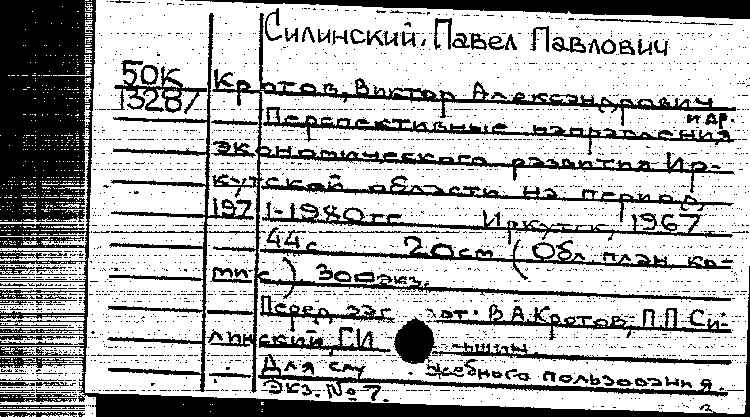 Силинский, Павел Павлович
50К
13287
Кротов, Виктор Александрович
и др.
Перспективные направления
экономического развития Ир-
кутской области на период
1971-1980 гг Иркутск, 1967
44с 20см (Обл. план. ко-
мис) 300экз.
Перед заг авт: В.А.Кротов, П.П.Си-
линский, Г.И.
Для служебного пользования.
Экз. № 7.